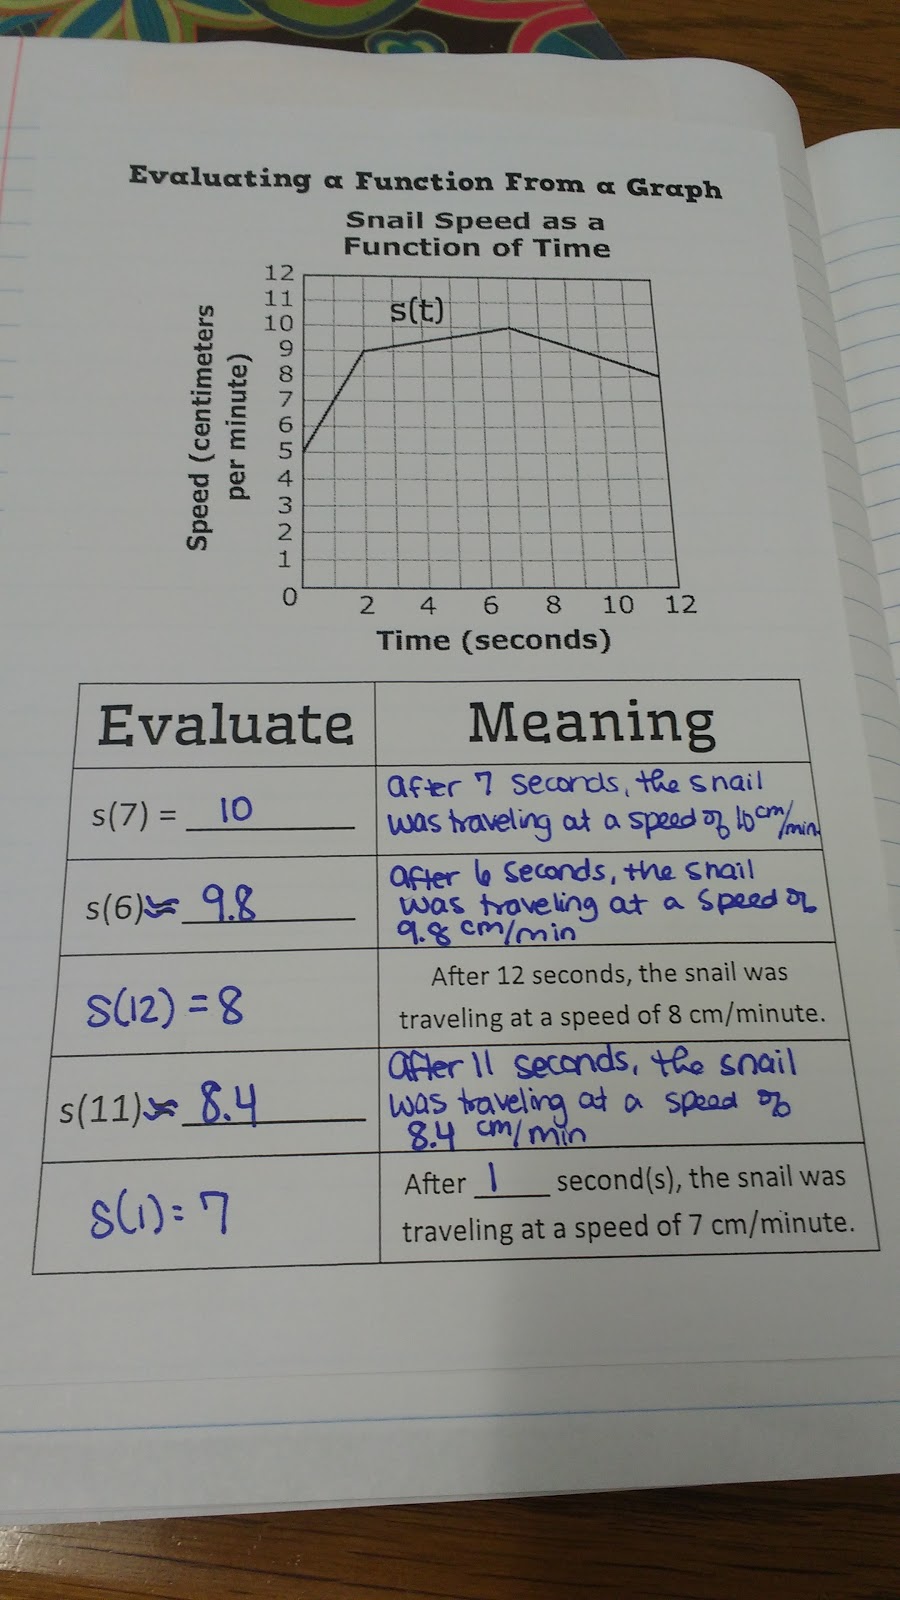 Evaluating a Function From a Graph
Snail Speed as a
Function of Time
Speed (centimeters
per minute)
12
11
10
9
8
7
6
5
4
3
2
1
0
s(t)
2 4 6 8 10 12
Time (seconds)
Evaluate Meaning
s(7) = 10
After 7 seconds, the snail
was traveling at a speed of 10 cm/min
s(6) ≈ 9.8
After 6 seconds, the snail
was traveling at a speed of
9.8 cm/min
s(12) = 8
After 12 seconds, the snail was
traveling at a speed of 8 cm/minute.
s(11) ≈ 8.4
After 11 seconds, the snail
was traveling at a speed of
8.4 cm/min
s(1) = 7
After 1 second(s), the snail was
traveling at a speed of 7 cm/minute.